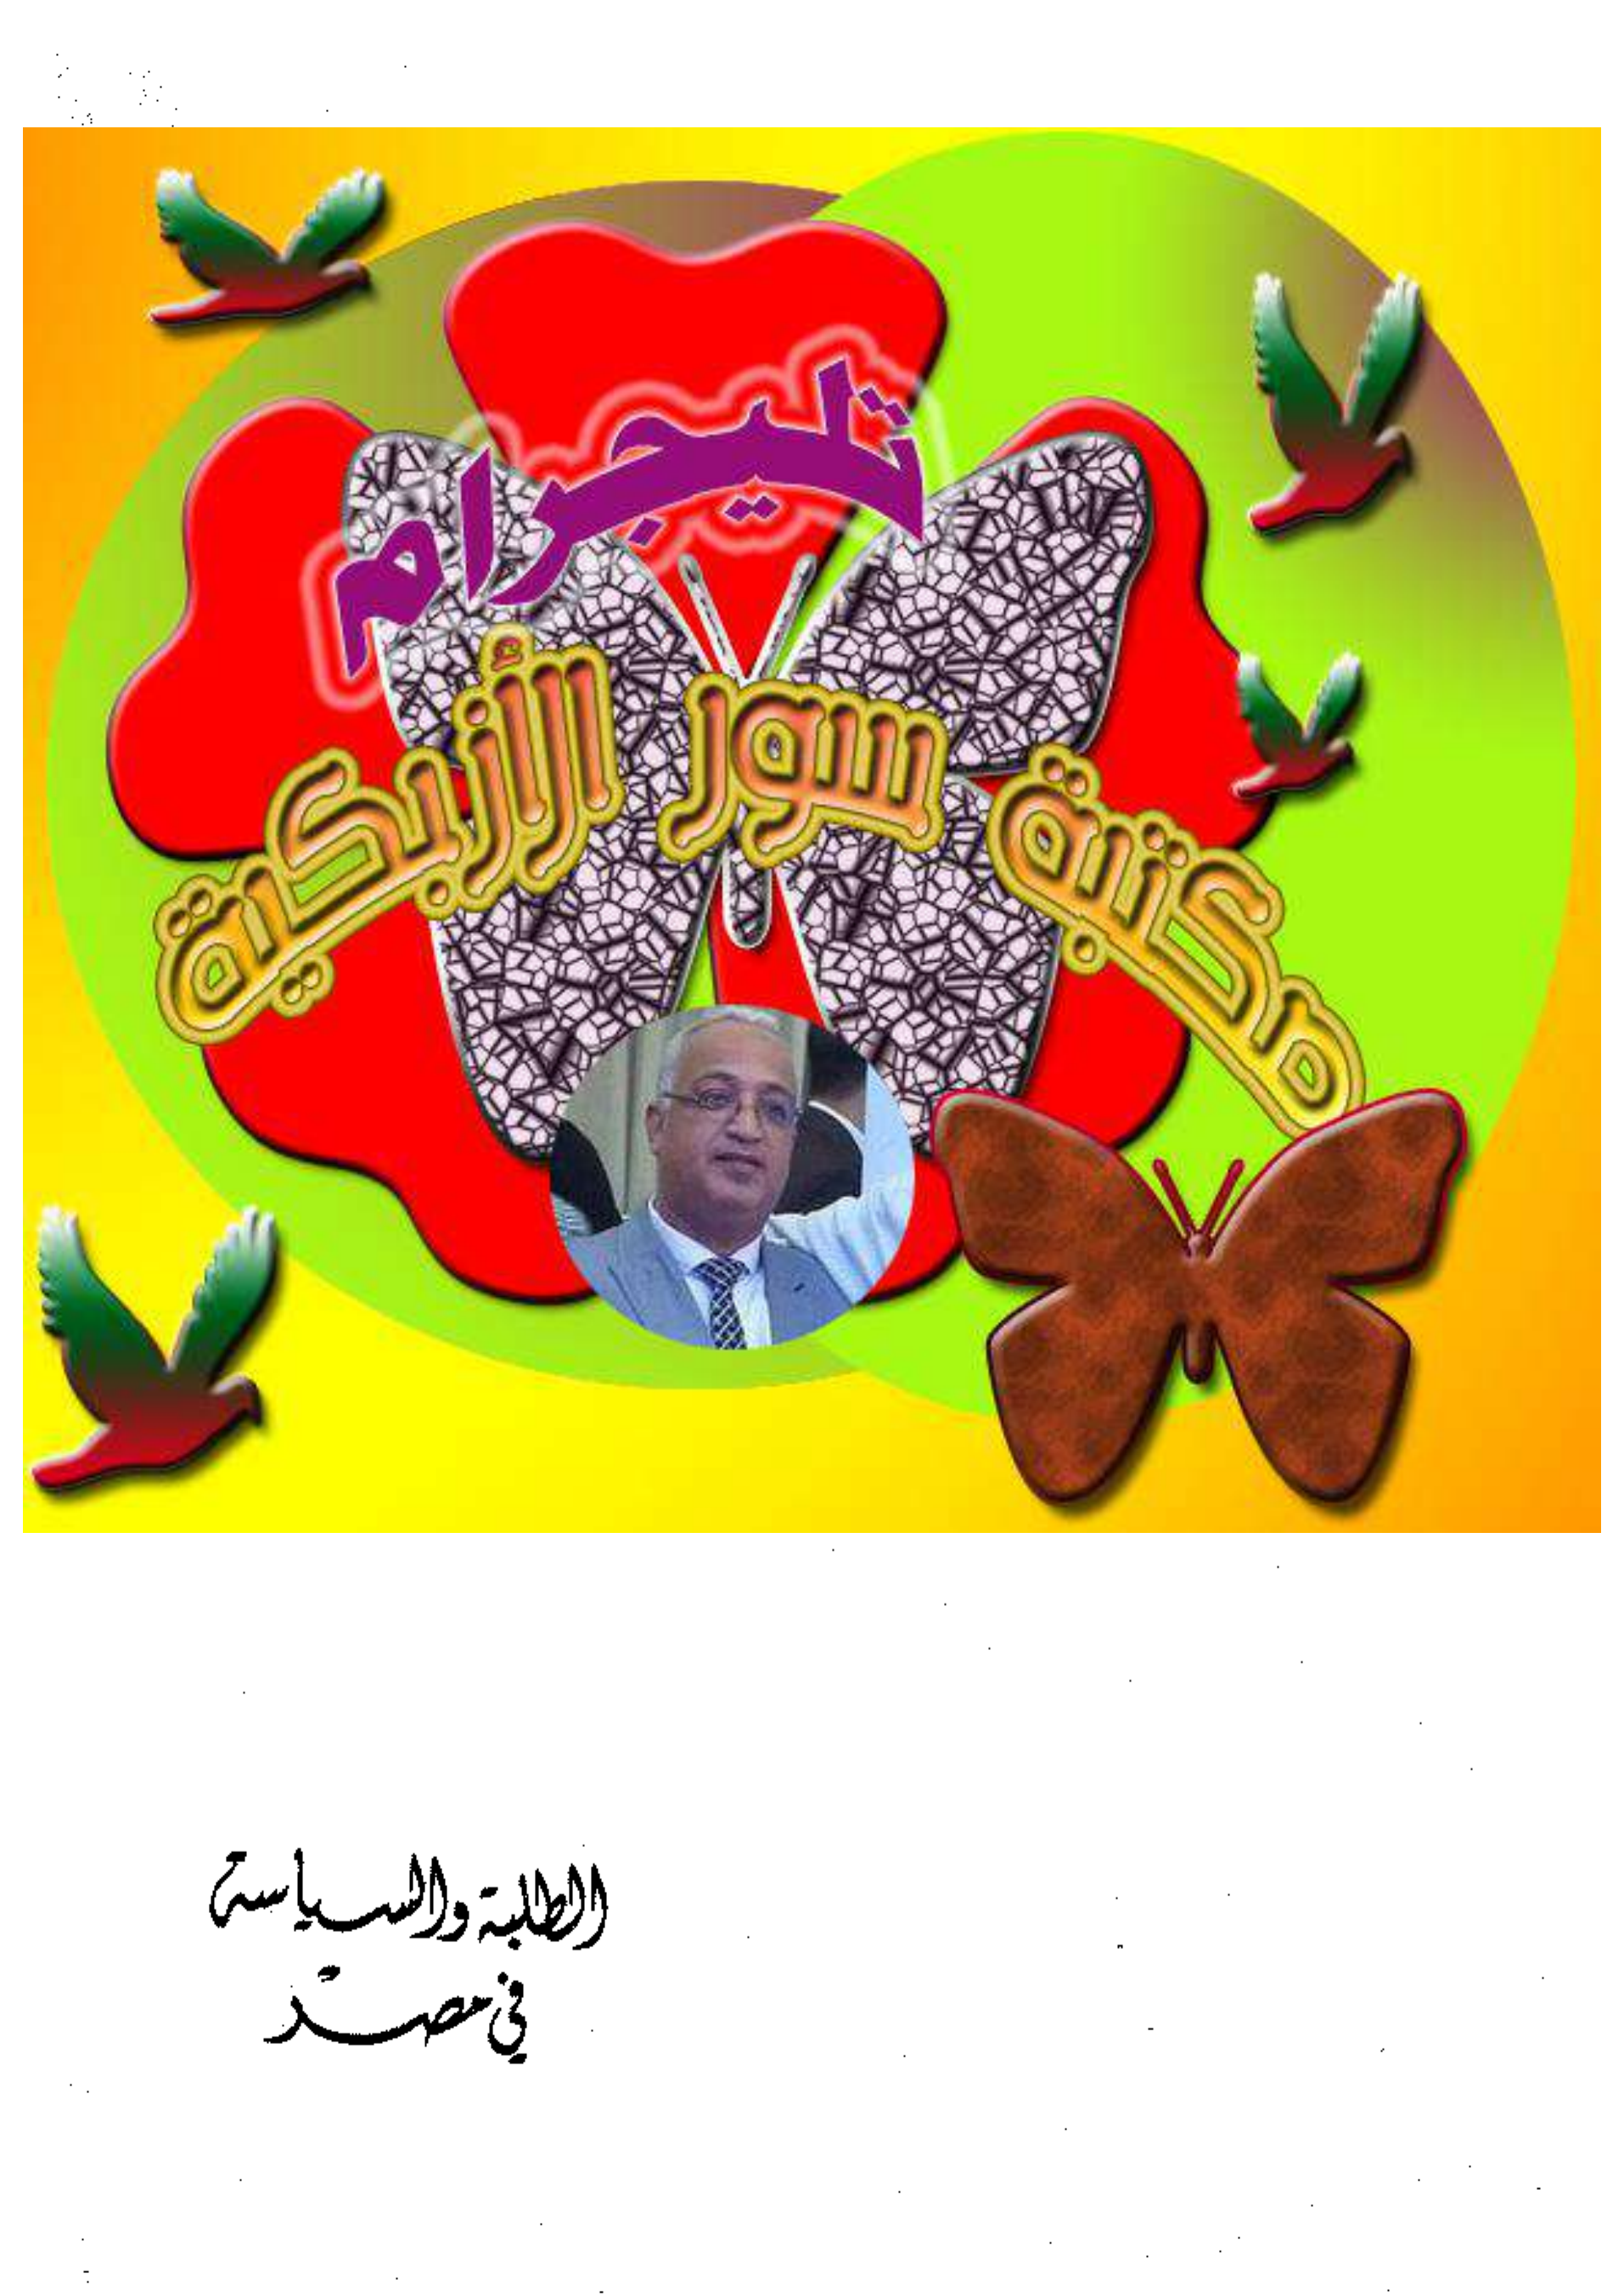 تليجرام
مكتبة سور الأزبكية
الطلبة والسياسة
في مصر